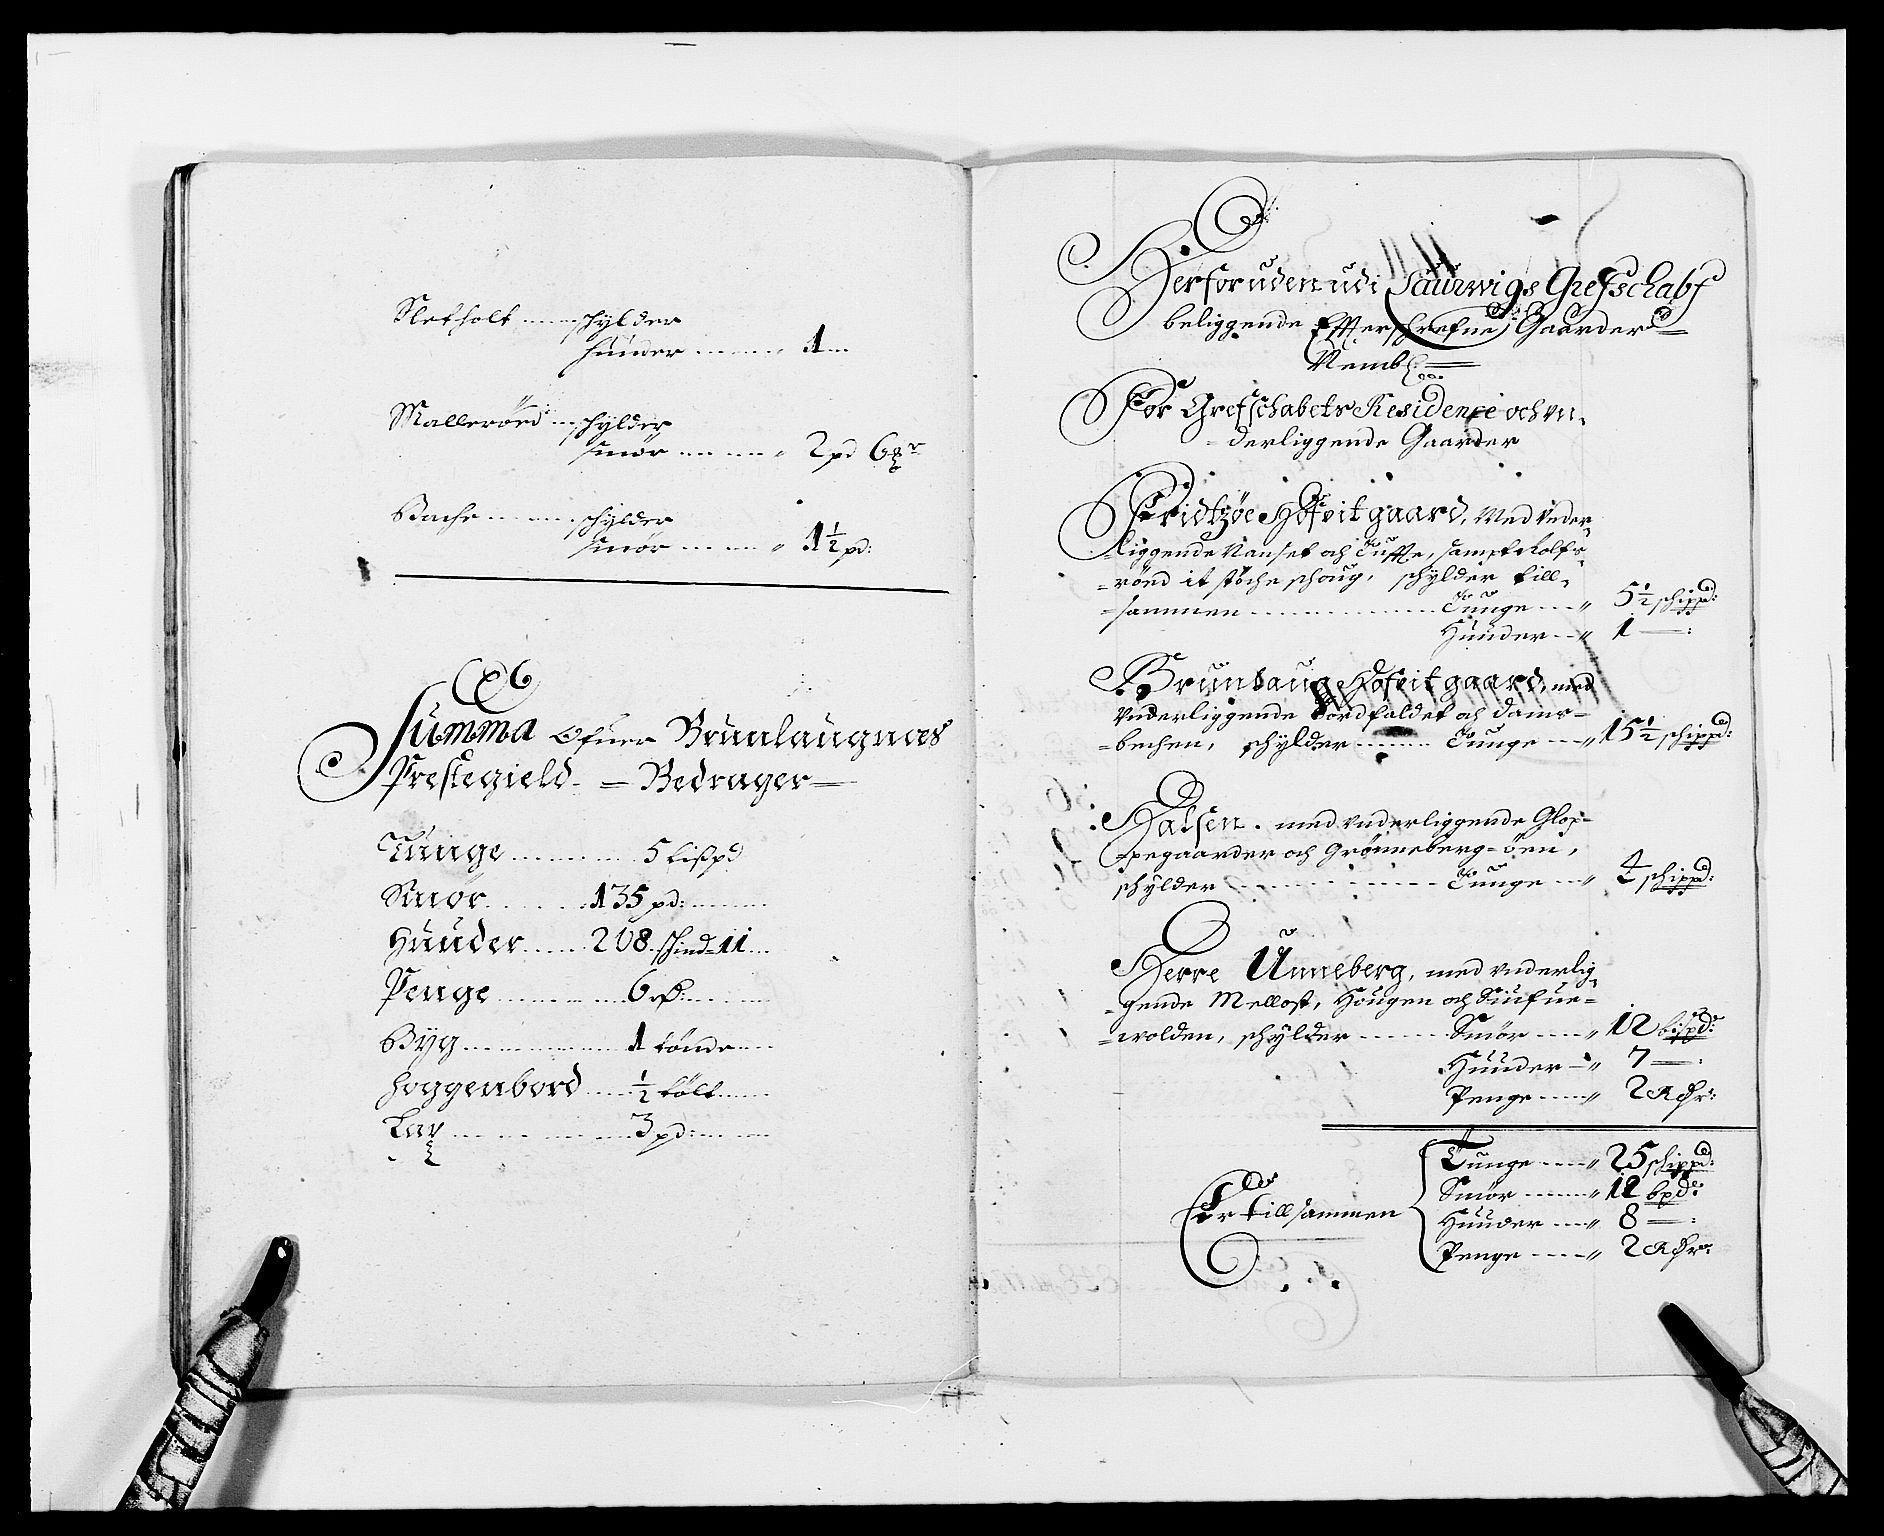 Sletholt ...... schylder
huuder ........ 1 ...
Malleröed .... schylder
smör ........ 2 pd 6
Bache ........ schylder
smör ........ 1½ pd:
Summa Ofuer Brunlaugnæs
Prestegield = Bedrager =
Tunge ............ 5 Lißpd
Smör .......... 135 pd: ........
Huuder ...... 208. schind 11 ...
Penge ............ 6
Byg ............... 1 tönde ....
hoggenbord ..... ½ tölt ......
Lax ............... 3 pd: ........
Herforuden udi Laurwigs Grefschabf
beliggende Effterschrefne Gaarder
Nembl:
For Grefschabets Residence och un-
derliggende Gaarder
Fridtzöe Hofeitgaard, Med Under-
liggende Nanset och Tuffte, sampt Rolfs-
=röed it støche schoug, schylder till-
=sammen .................. Tunge ... 5½ schippd:
Huuder ... 1 — :
Brunlaug Hofeitgaard, med
Vnderliggende Jordfaldet och dams-
=bechen, schylder ......... Tunge ... 15½ schippd:
Halsen. med vnderliggende Glop-
=pegaarder och Grönneberg=öen,
schylder .................. Tunge ... 4 schippd:
Herre Unneberg, med vnderlig-
=gende Mellost, Hougen och
=wolden, schylder ......... Smör ..... 12 bispd:
Huuder ... 7 — :
Penge ..... 2 Rdr:
Er tillsammen
Tunge ..... 25 schippd:
Smör ....... 12 bpd:
Huuder .... 8 — :
Penge ..... 2 Rdr: